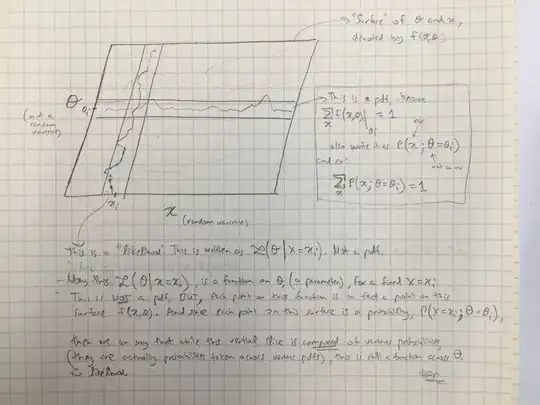 "Surface" of θ and x,
denoted by f(x,θ)
θ
θi
(not a
random
variable)
This is a pdf, because
∑x f(x,θ)|θi = 1
also write it as P(x; θ=θi)
and so:
∑x P(x; θ=θi) = 1
xi
x
(random variable)
This is a "likelihood". This is written as ℒ(θ|x=xi). Not a pdf.
- Now, this ℒ(θ|x=xi), is a function on θ, (a parameter), for a fixed x=xi
- This is NOT a pdf, BUT, each point on this function is in fact a point on this
surface f(x,θ). And since each point on this surface is a probability, P(x=xi; θ=θi),
then we can say that while this vertical slice is composed of various probabilities,
(they are actually probabilities taken across various pdfs), this is still a function across θ.
likelihood.